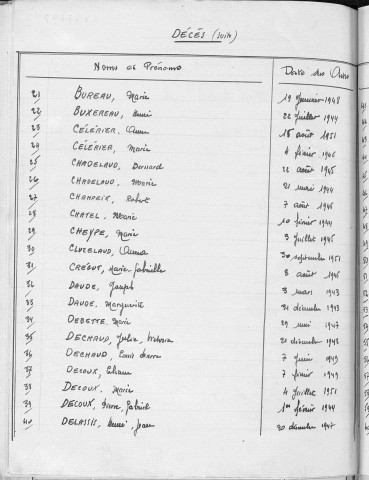 DÉCÉS (suite)
Noms et Prénoms Date des Actes
21 BUREAU, Marie 19 Janvier 1948
22 BUXEREAU, Henri 22 Juillet 1944
23 CÉLÉRIER, 18 août 1951
24 CÉLÉRIER, Marie 4 février 1946
25 CHADELAUD, Bernard 22 août 1945
26 CHADELAUD, Marie 21 mai 1944
27 CHAMPEIX, Robert 7 août 1946
28 CHATEL, Marie 10 février 1944
29 CHEYPE, Marie 3 Juillet 1946
30 CLUZELAUD, Anna 30 septembre 1951
31 CRÉGUT, Marie Gabrielle 8 août 1946
32 DAUDE, Joseph 3 mars 1943
33 DAUDE, Marguerite 31 décembre 1943
34 DEBETTE, Marie 29 mai 1947
35 DECHAUD, Julie, 21 décembre 1948
36 DECHAUD, Louis Pierre 7 juin 1949
37 DECOUX, Éliane 7 février 1949
38 DECOUX, Marie 4 Juillet 1951
39 DECOUX, Pierre, Gabriel 1er février 1944
40 DELASSIS, Henri, Jean 20 décembre 1947